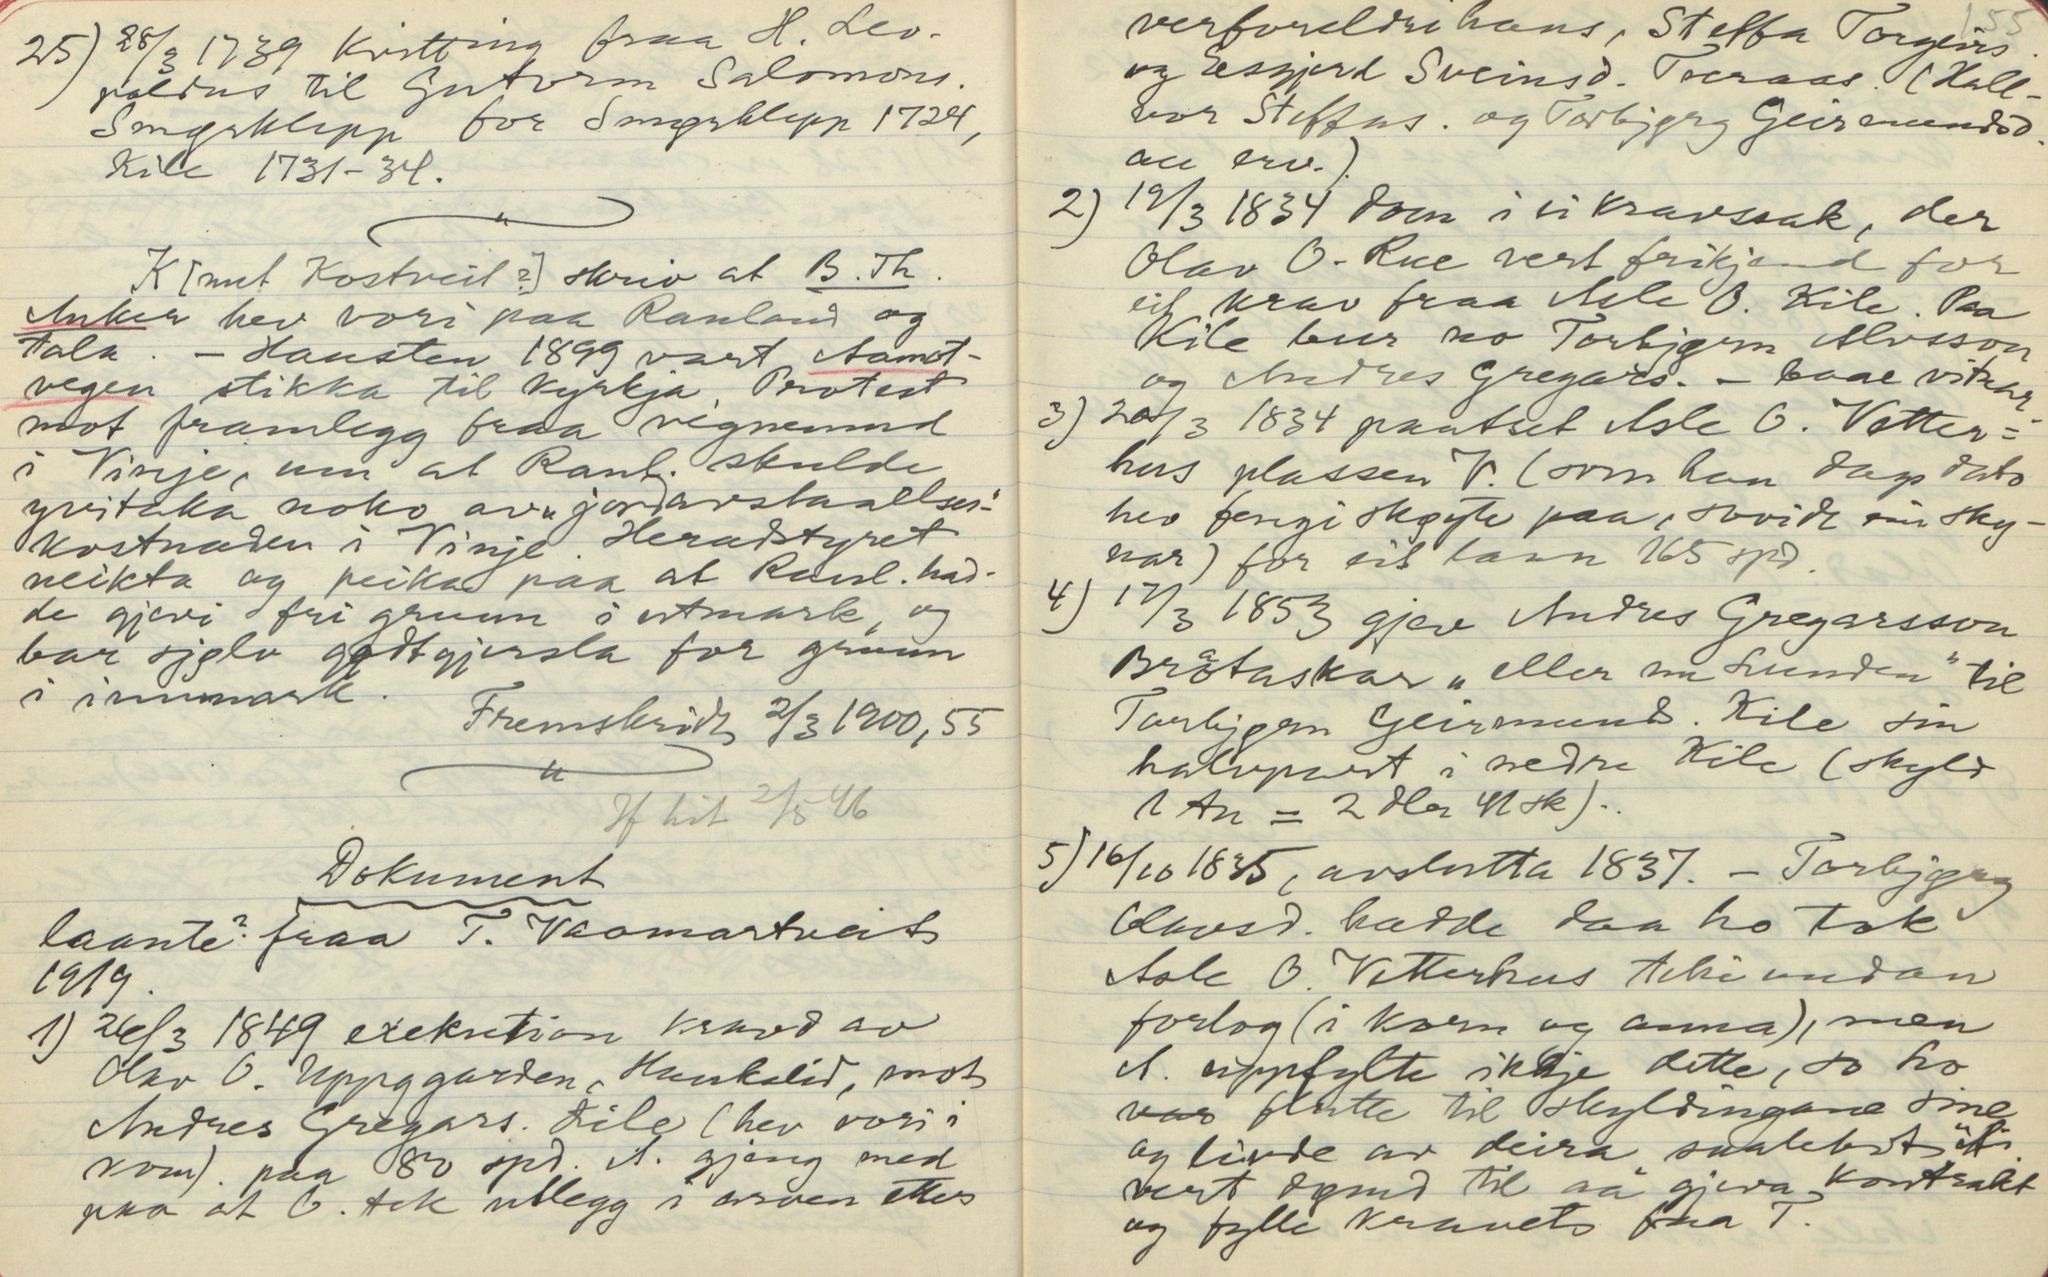 25) 28/3 1739 Kvitting fraa H. Leo-
poldus til Gutorm Salomons.
Smørklepp for Smørklepp 1724,
Kile 1731-34.
K[nut Kostveit?] skriv at B. Th.
Anker hev vori paa Rauland og
tala. - Hausten 1899 vart Aamot-
vegen stikka til kyrkja. Protest
mot framlegg fraa vegnemnd
i Vinje, um at Raul. skulde
yvitaka noko av "jordavstaaelses"-
kostnaden i Vinje. Heradstyret
neikta og peika paa at Raul. had-
de gjevi fri grunn i utmark, og
bar sjølv godtgjersla for grunn
i innmark.
Fremskridt 2/3 1900, 55
Hf hit 2/5 46
Dokument
laante? fraa T. Vaamartveit
1919.
1) 26/3 1849 exekution kravd av
Olav O. Uppgarden, Haukelid, mot
Andres Gregars. Kile (hev vori i
kom). paa 80 spd. A. gjeng med
paa at O. tek utlegg i arven etter
155
verforeldri hans, Steffa Torgeirs.
og Æsgjerd Sveinsd. Tveraas. (Hall-
vor Steffns. og Torbjørg Geirmundsd.
au erv.)
2) 19/3 1834 dom i vikravssak, der
Olav O. Rue vert frikjend for
eit krav fraa Asle O. Kile. Paa
Kile bur no Torbjørn Alvsson
og Andres Gregars. - baae vitnar
3) 20/3 1834 pantset Asle O. Vetter=
hus plassen V. (som han dags dato
hev fengi skøyte paa, sovidt ein sky-
nar) for eit laan 165 spd.
4) 17/3 1853 gjev Andres Gregarsson
Bråtaskar "eller nu Lunden" til
Torbjørn Geirmunds. Kile sin
halvpart i nedre Kile (skyld
1 An = 2 dler 41 sk).
5) 16/10 1835, avslutta 1837. - Torbjørg
Olavsd. hadde daa ho tok
Asle O. Vetterhus teki undan
forlog (i korn og anna), men
A. uppfylte ikkje dette, so ho
var flutte til skyldingane sine
og livde av deira
vert dømd til aa gjeva kontrakt
og fylle kravet fraa T.